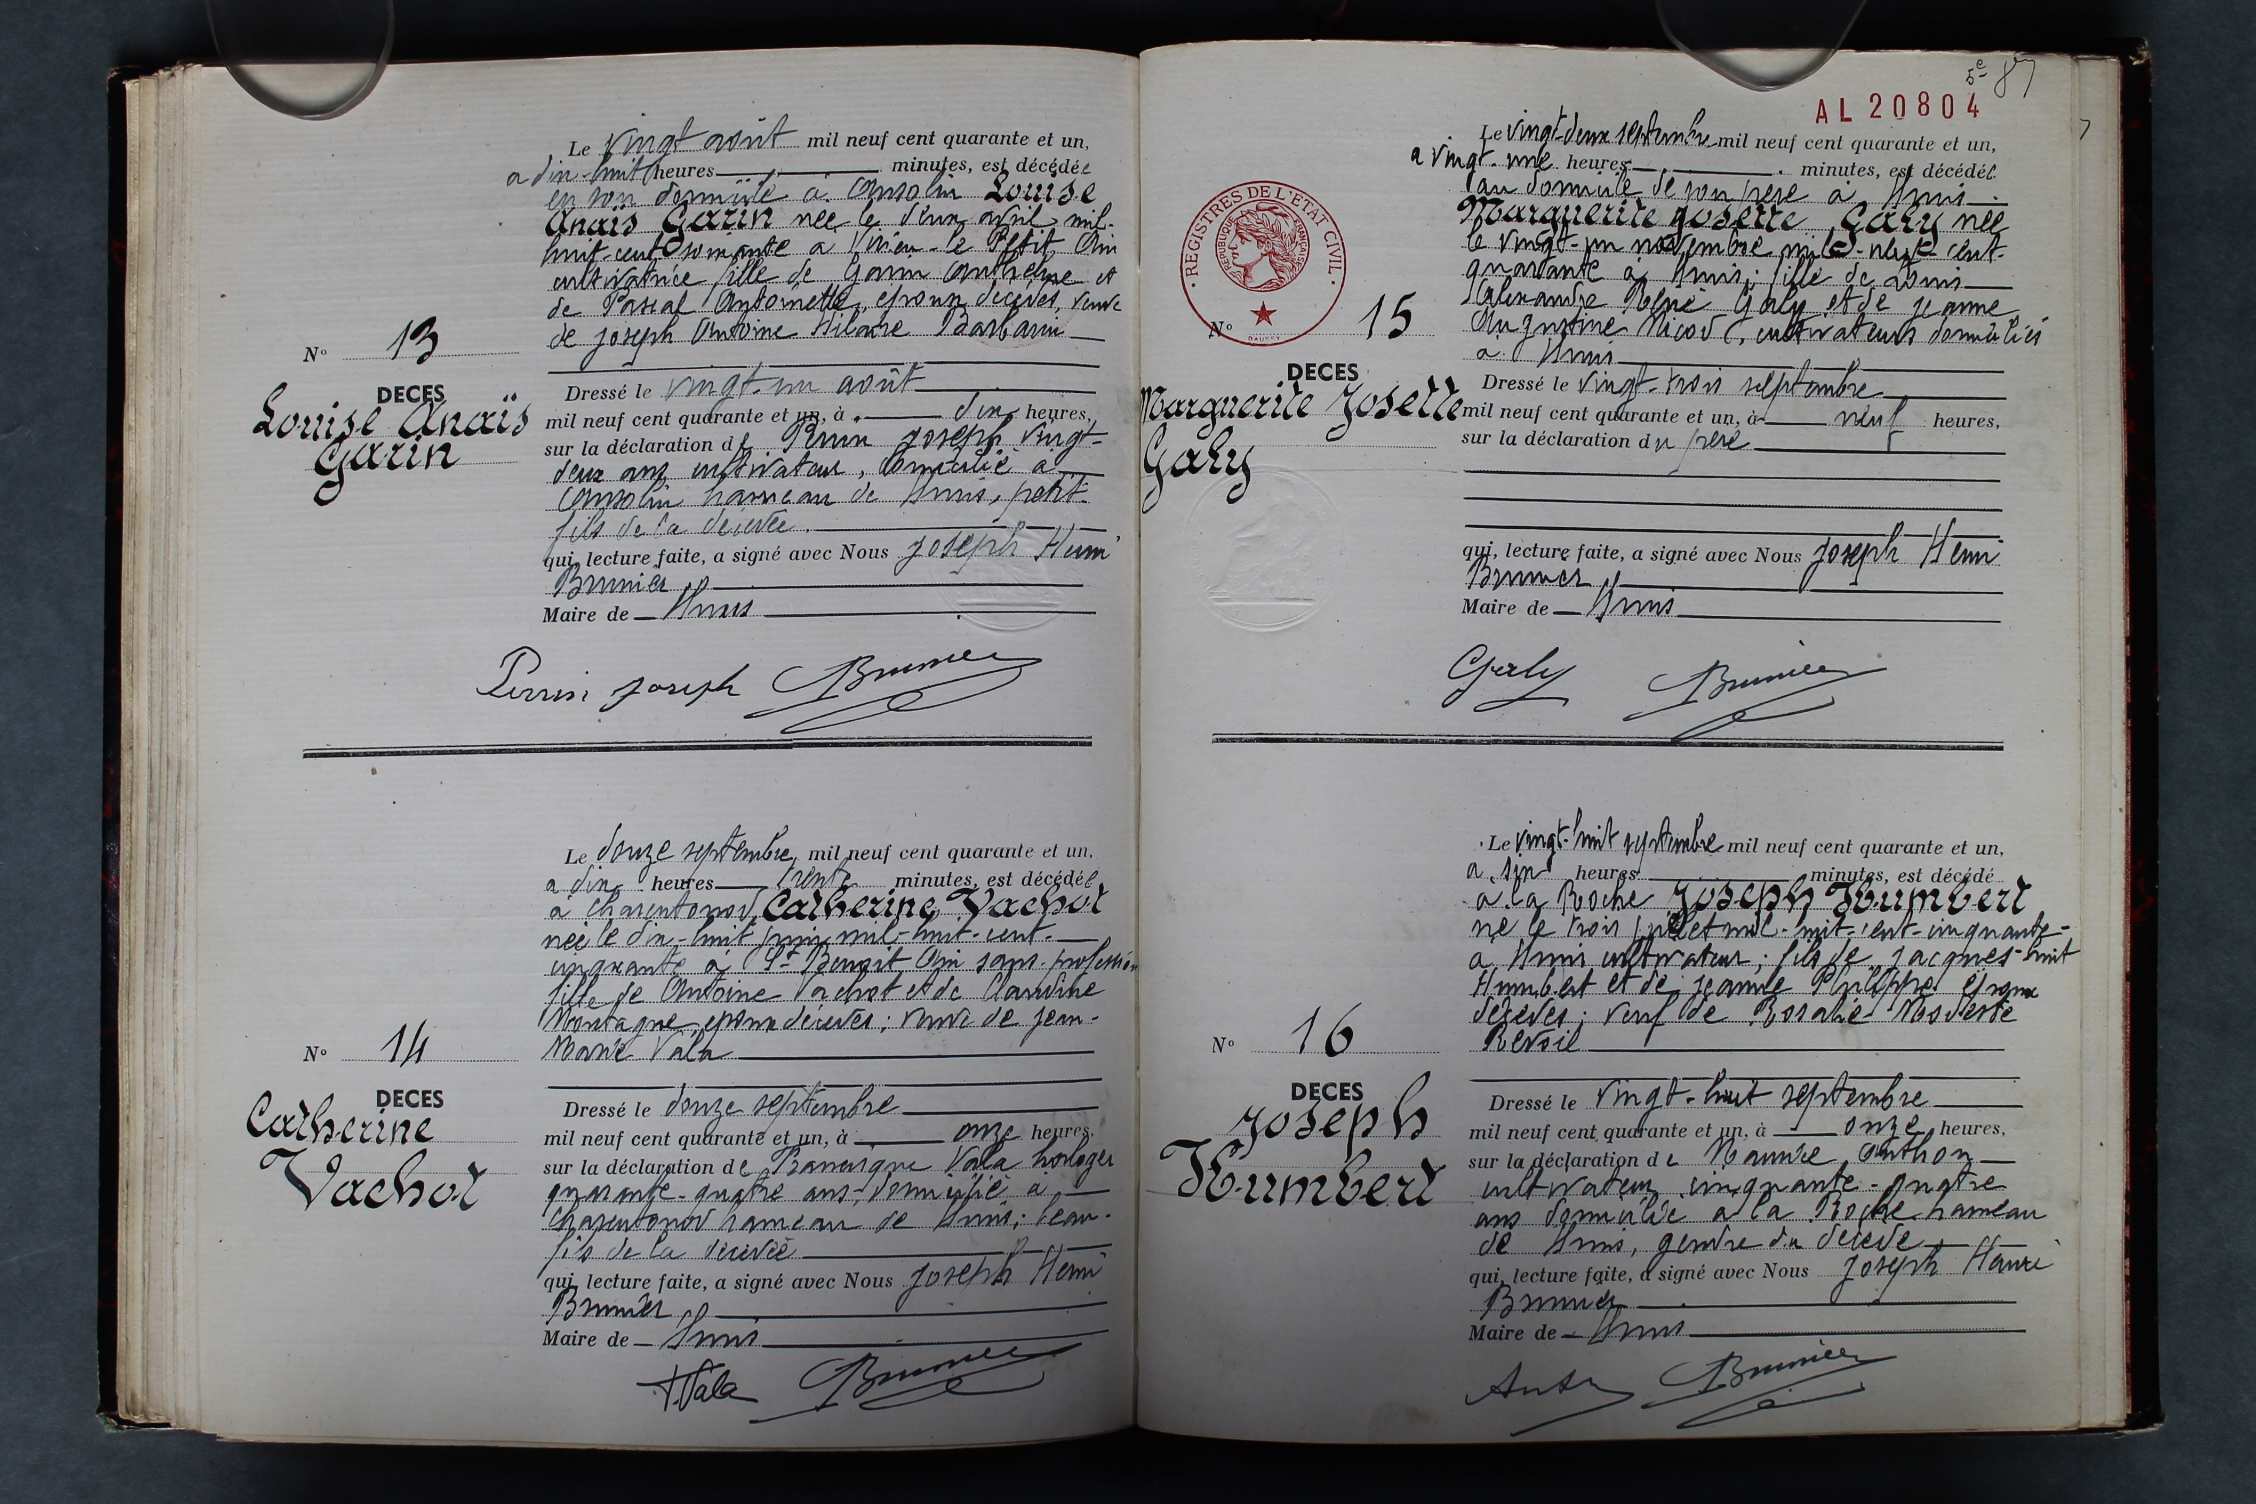 Le vingt août mil neuf cent quarante et un,
a dix-huit heures minutes, est décédée
en son domicile à Ansolin Louise
Anaïs Garin née le deux avril mil-
huit-cent soixante a Virieu-le Petit Ain
cultivatrice fille de Garin Anthelme et
de Pascal Antoinette, epoux décédés, veuve
de Joseph Antoine Hilaire Barbarin
Nº 13
DECES
Louise Anaïs
Garin
Dressé le vingt-un août
mil neuf cent quarante et un, à dix heures,
sur la déclaration de Perrin Joseph vingt-
deux ans cultivateur, domicilié à
Ansolin hameau de Lhuis, petit-
fils de la décédée.
qui, lecture faite, a signé avec Nous Joseph Henri
Brunier
Maire de Lhuis
Perrin Joseph Brunier
Le douze septembre mil neuf cent quarante et un,
a dix heures trente minutes, est décédée
à Charentonod Catherine Vachot
née le dix-huit juin mil-huit-cent-
cinquante à St Benoit Ain sans-profession
fille de Antoine Vachot et de Claudine
Montagne, epoux décédés; veuve de Jean-
Marie Vala
Nº 14
DECES
Catherine
Vachot
Dressé le douze septembre
mil neuf cent quarante et un, à onze heures,
sur la déclaration de Francisque Vala horloger
quarante-quatre ans, domicilié à
Charentonod hameau de Lhuis; beau-
fils de la décédée
qui, lecture faite, a signé avec Nous Joseph Henri
Brunier
Maire de Lhuis
F Vala Brunier
5e 87
AL 20804
REGISTRES DE L'ETAT CIVIL
REPUBLIQUE FRANÇAISE
Le vingt-deux septembre mil neuf cent quarante et un,
a vingt-une heures minutes, est décédée
au domicile de son pere à Lhuis
Marguerite Josette Galy née
le vingt-un novembre mil-neuf cent-
quarante à Lhuis; fille de Louis
Alexandre René Galy et de Jeanne
Augustine Nicod, cultivateurs domiciliés
à Lhuis
Nº 15
DECES
Marguerite Josette
Galy
Dressé le vingt-trois septembre
mil neuf cent quarante et un, à neuf heures,
sur la déclaration du pere
qui, lecture faite, a signé avec Nous Joseph Henri
Brunier
Maire de Lhuis
Galy Brunier
Le vingt-huit septembre mil neuf cent quarante et un,
a six heures minutes, est décédé
a la Roche Joseph Humbert
né le trois juillet mil-huit-cent-cinquante-
à Lhuis cultivateur; fils de Jacques huit
Humbert et de Jeanne Philippe epoux
décédés; veuf de Rosalie Modeste
Revoil
Nº 16
DECES
Joseph
Humbert
Dressé le vingt-huit septembre
mil neuf cent quarante et un, à onze heures,
sur la déclaration de Maurice Anthon
cultivateur cinquante-quatre
ans domicilié à la Roche hameau
de Lhuis, gendre du décédé
qui, lecture faite, a signé avec Nous Joseph Henri
Brunier
Maire de Lhuis
Brunier